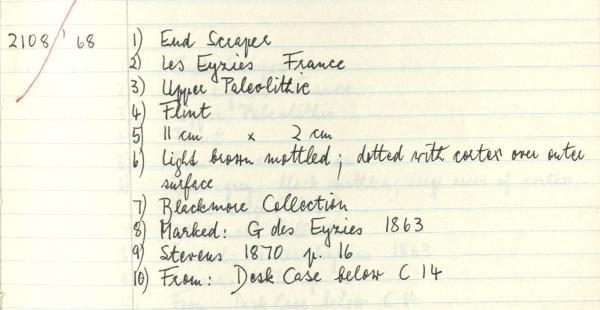 2108 ' 68
1) End Scraper
2) Les Eyzies France
3) Upper Paleolithic
4) Flint
5) 11 cm x 2 cm
6) Light brown mottled; dotted with cortex over outer
surface
7) Blackmore Collection
8) Marked: G des Eyzies 1863
9) Stevens 1870 p. 16
10) From: Desk Case below C 14